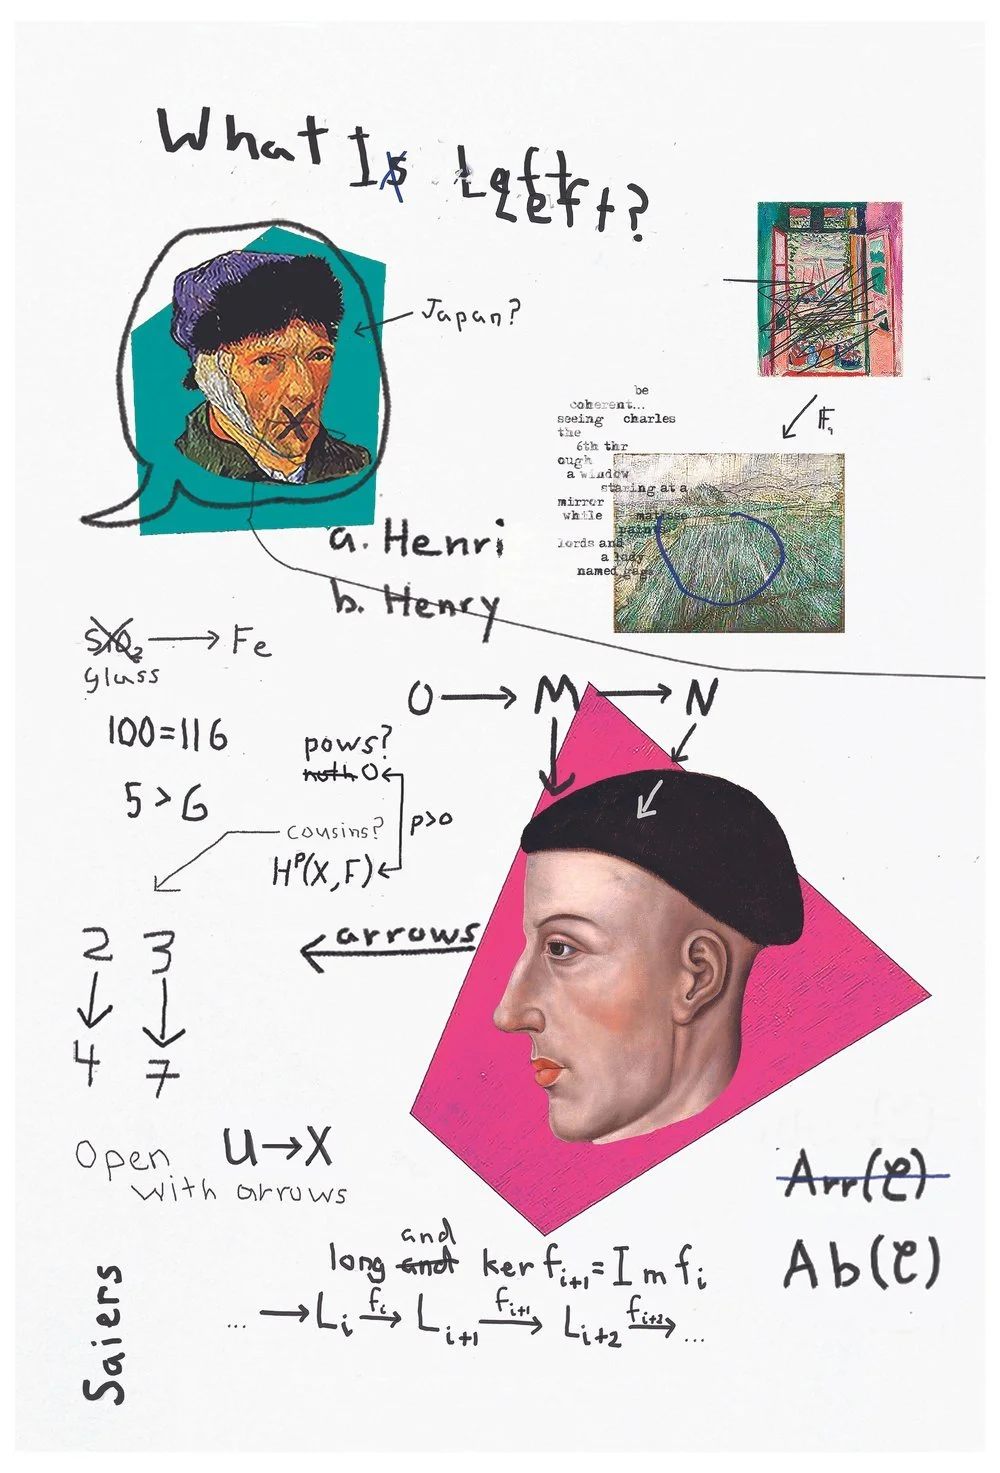 What Is Left
Left?
Japan?
be
coherent...
seeing charles
the
6th thr
ough
a window
staring at a
mirror
while matisse
paints
lords and
a lady
named
a. Henri
b. Henry
SiO₂ → Fe
glass
100=116
5 > 6
O → M → N
pows?
noth O
p>0
cousins?
Hᵖ(X,F)
arrows
2 3
4 7
Open U→X
with arrows
Arr(C)
Ab(C)
and
long and ker fᵢ₊₁ = Im fᵢ
... → Lᵢ fᵢ→ Lᵢ₊₁ fᵢ₊₁→ Lᵢ₊₂ fᵢ₊₂→ ...
Saiers